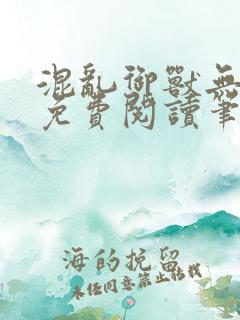 混亂御獸無
免費閱讀筆
海的挽留
未經同意禁止轉載